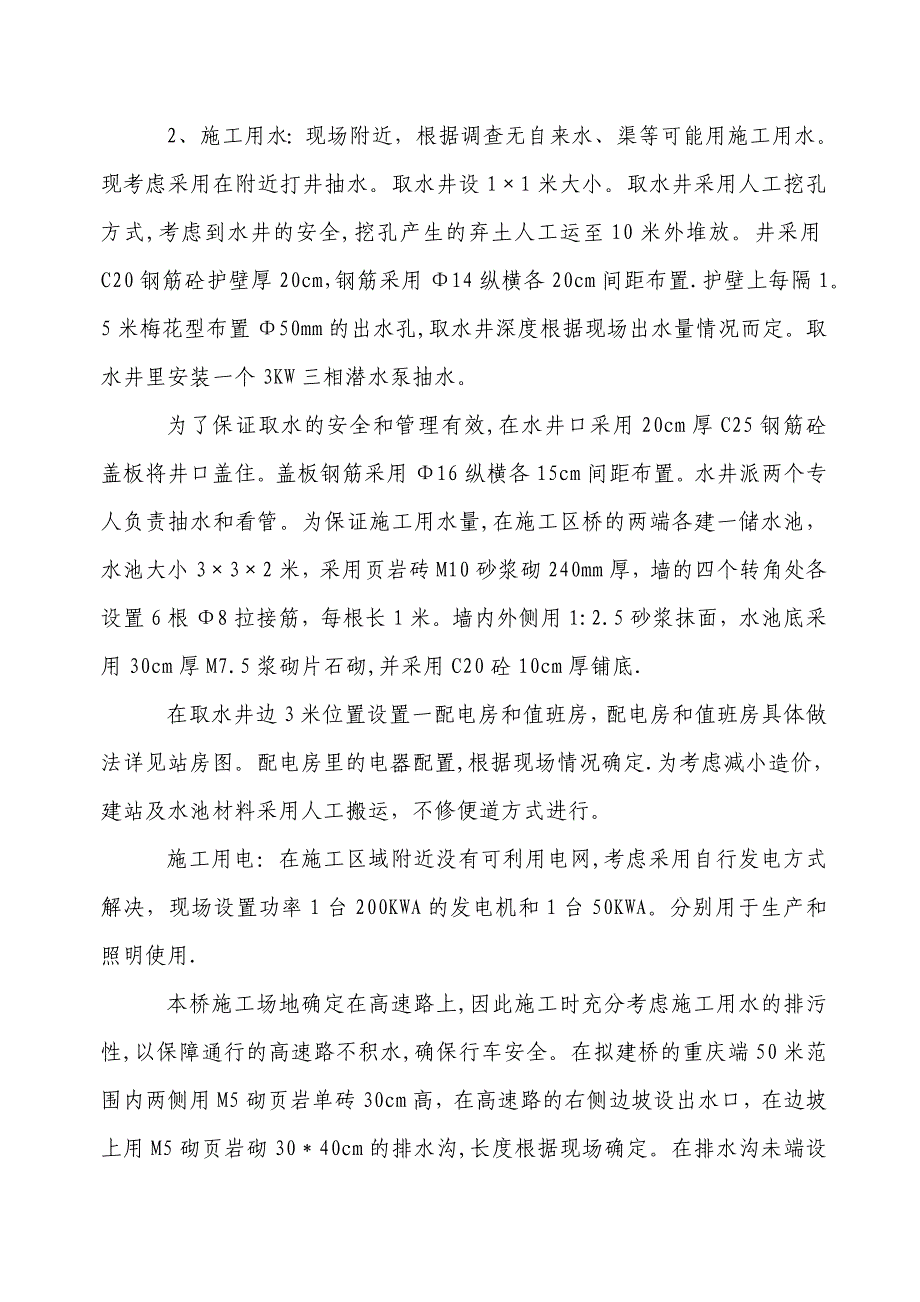 2、施工用水: 现场附近，根据调查无自来水、渠等可能用施工用水。
现考虑采用在附近打井抽水。取水井设 1×1 米大小。取水井采用人工挖孔
方式,考虑到水井的安全,挖孔产生的弃土人工运至 10 米外堆放。井采用
C20 钢筋砼护壁厚 20cm,钢筋采用 Φ14 纵横各 20cm 间距布置.护壁上每隔 1。
5 米梅花型布置 Φ50mm 的出水孔,取水井深度根据现场出水量情况而定。取
水井里安装一个 3KW 三相潜水泵抽水。
为了保证取水的安全和管理有效,在水井口采用 20cm 厚 C25 钢筋砼
盖板将井口盖住。盖板钢筋采用 Φ16 纵横各 15cm 间距布置。水井派两个专
人负责抽水和看管。为保证施工用水量,在施工区桥的两端各建一储水池，
水池大小 3×3×2 米，采用页岩砖 M10 砂浆砌 240mm 厚，墙的四个转角处各
设置 6 根 Φ8 拉接筋，每根长 1 米。墙内外侧用 1:2.5 砂浆抹面，水池底采
用 30cm 厚 M7.5 浆砌片石砌,并采用 C20 砼 10cm 厚铺底.
在取水井边 3 米位置设置一配电房和值班房，配电房和值班房具体做
法详见站房图。配电房里的电器配置,根据现场情况确定.为考虑减小造价，
建站及水池材料采用人工搬运，不修便道方式进行。
施工用电: 在施工区域附近没有可利用电网,考虑采用自行发电方式
解决，现场设置功率 1 台 200KWA 的发电机和 1 台 50KWA。分别用于生产和
照明使用.
本桥施工场地确定在高速路上,因此施工时充分考虑施工用水的排污
性,以保障通行的高速路不积水,确保行车安全。在拟建桥的重庆端 50 米范
围内两侧用 M5 砌页岩单砖 30cm 高，在高速路的右侧边坡设出水口，在边坡
上用 M5 砌页岩砌 30*40cm 的排水沟,长度根据现场确定。在排水沟未端设